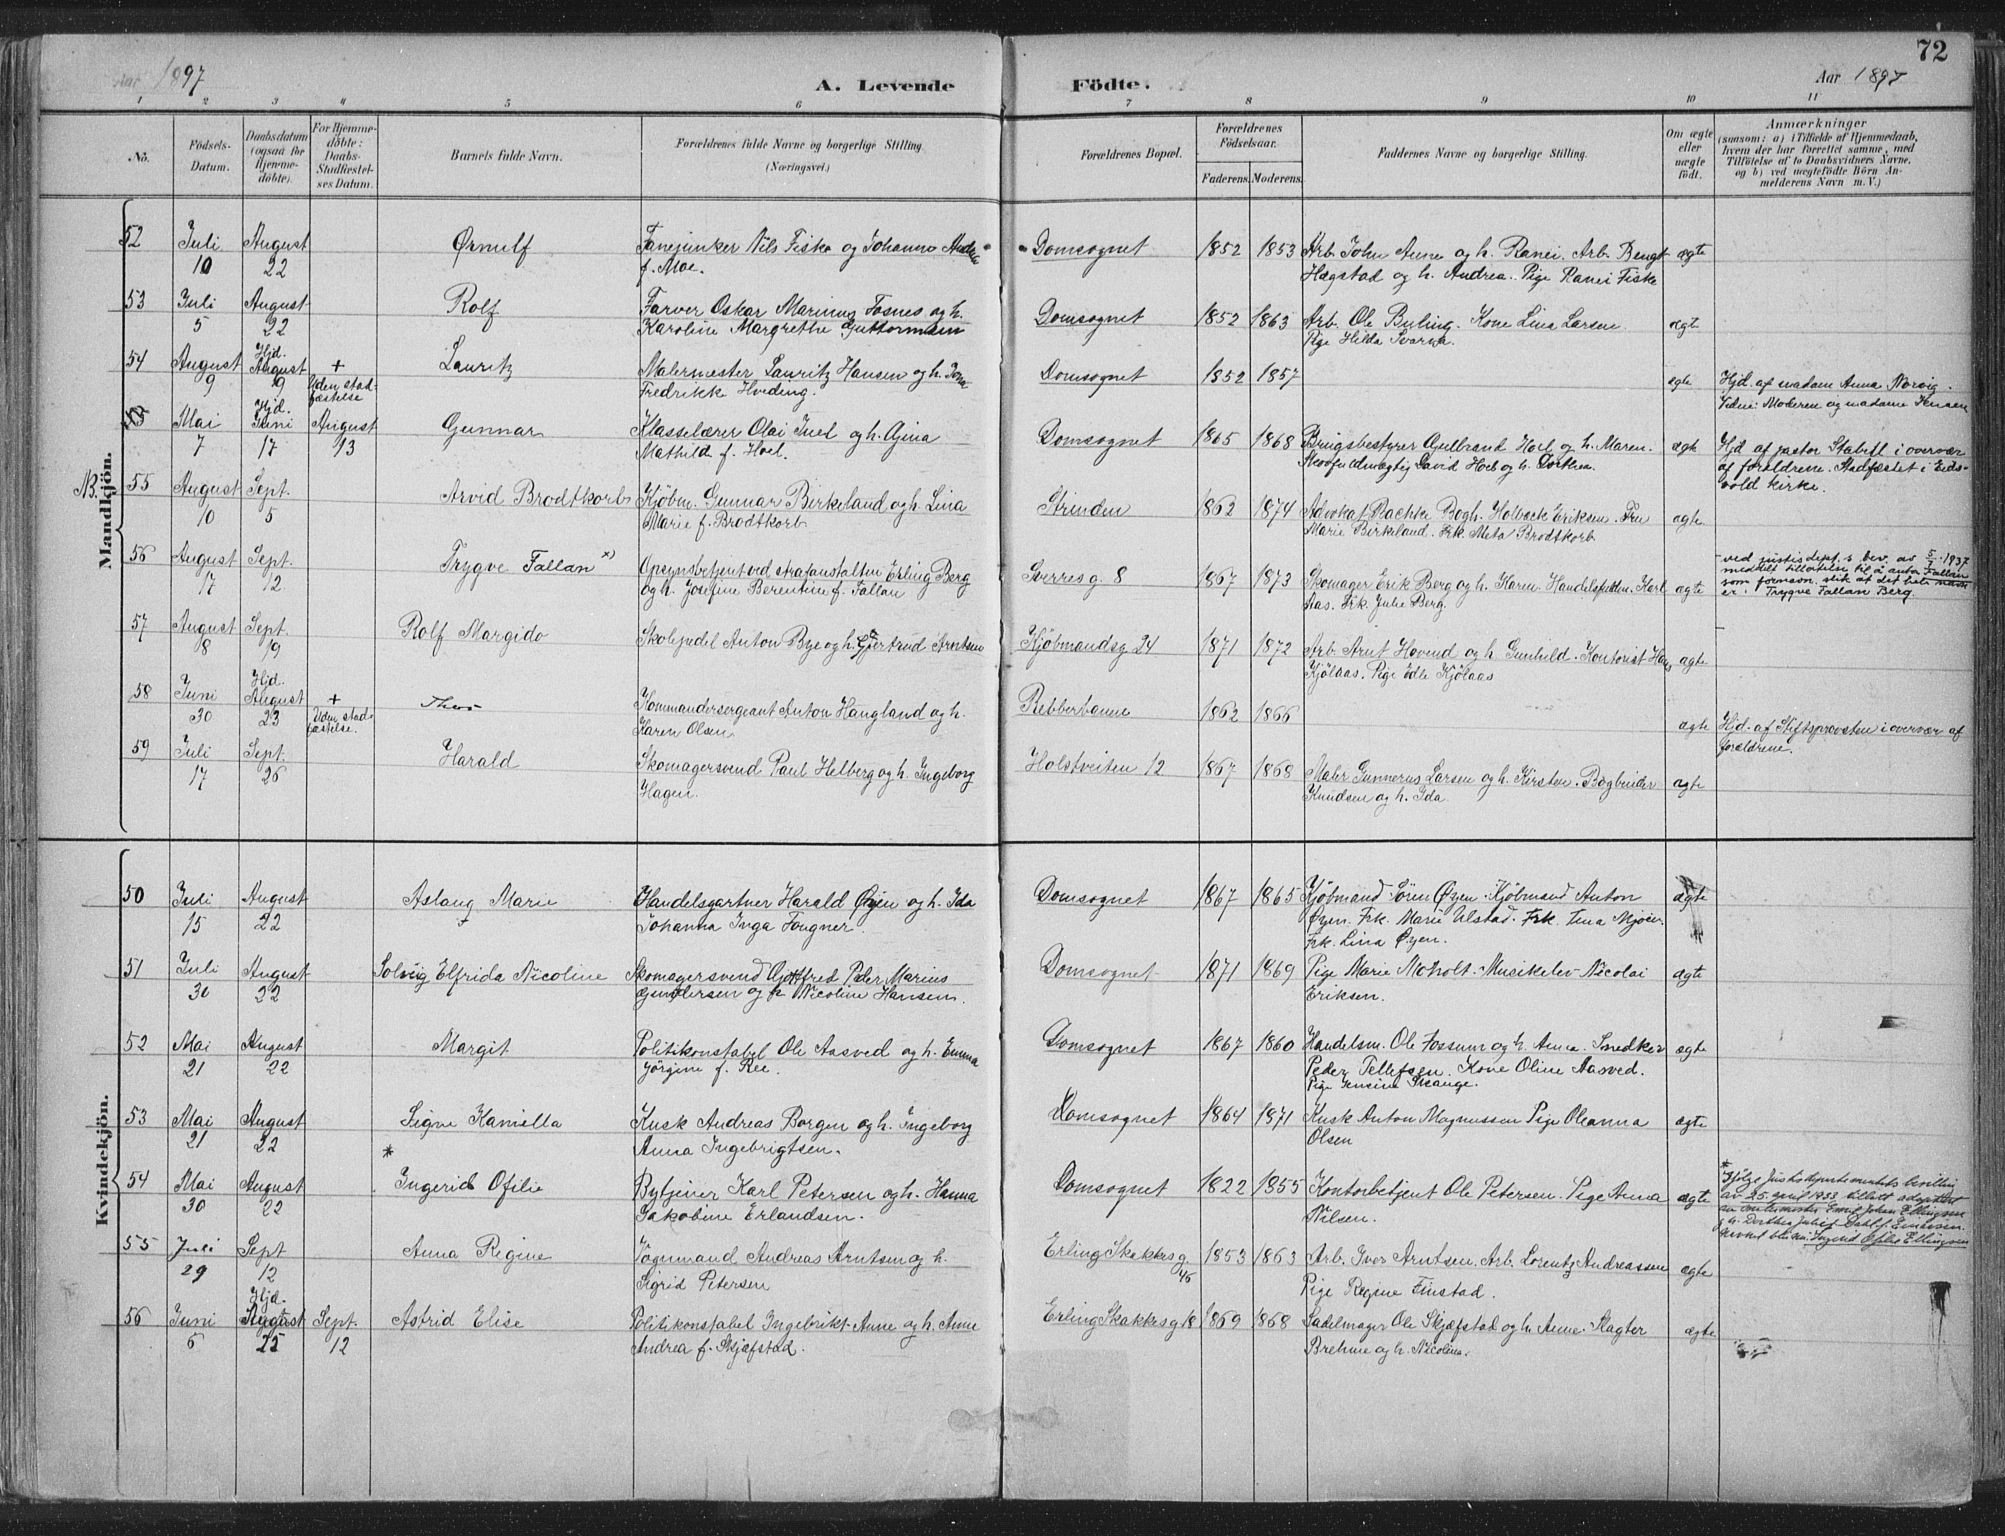 72
Aar 1897
A. Levende
Födte.
Aar 1897
1 2 3 4 5 6 7 8 9 10 11
No.
Födsels-Datum.
Daabsdatum (ogsaa for Hjemme-döbte).
For Hjemme-döbte: Daabs-Stadfæstel-ses Datum.
Barnets fulde Navn.
Forældrenes fulde Navne og borgerlige Stilling (Næringsvei.)
Forældrenes Bopæl.
Forældrenes Födselsaar.
Faderens. Moderens.
Faddernes Navne og borgerlige Stilling.
Om ægte eller uægte födt.
Anmærkninger
(saasom: a) i Tilfælde af Hjemmedaab,
hvem der har forrettet samme, med
Tilföielse af to Daabsvidners Navne,
og b) ved uægtefödte Börn An-
melderens Navn m. V.)
Mandkjön.
52 Juli August Ørnulf Fanejunker Nils Fiske og Johanna Domsognet 1852 1853 Arb. John Aune og h. Ranei. Arb. Bengt ægte
10 22 f. Moe. Hagstad og h. Andrea. Pige Ranei Fiske
53 Juli August Rolf Farver Oskar Marinus Fosnes og h. Domsognet 1852 1863 Arb. Ole Buling. Kone Lina Larsen ægte
5 22 Karoline Margrethe Guttormsen Pige Hilda
54 August Hjd. August + Lauritz Malermester Lauritz Hansen og h. Domsognet 1852 1857 ægte Hjd. af madam Anna Norvig.
9 9 Uden stad-fæstelse Fredrikke Hveding. Vidne: Moderen og madame Jensen
Mai Hjd. Juni August Gunnar Klasselærer Olai Juel og h. Gina Domsognet 1865 1868 Brugsbestyrer Gulbrand Hoel og h. Maren. ægte Hjd. af pastor Stabell i overvær
7 17 13 Mathild f. Hoel. Skovfuldmægtig David Hoel og h. Dorthea. af forældrene. Stadfæstet i Eids-
vold kirke.
NB. 55 August Sept. Arvid Brodtkorb Kjøbm. Gunnar Birkeland og h. Lina Strinden 1862 1874 Advokat Bachke Bogh. Holbæck Eriksen. Fru ægte
10 5 Marie f. Brodtkorb Marie Birkeland. Frk. Meta Brodtkorb.
56 August Sept. Trygve Fallan x) Opsynsbetjent ved strafanstalten Erling Berg Sverresg. 8 1867 1873 Skomager Erik Berg og h. Karen. Handelsfuldm. Karl ægte
17 12 og h. Josefine Berentine f. Fallan Aas. Frk. Julie Berg.
- ved justisdept.s bev. av 5/7 1937
meddelt tillatelse til å anta Fallan
som fornavn, slik at det hele navn
er: Trygve Fallan Berg.
57 August Sept. Rolf Margido Skolepedel Anton Bye og h. Gjertrud Arntsen Kjøbmandsg 24 1871 1872 Arb. Arnt Hovend og h Gunhild. Kontorist Hans ægte
8 19 Kjölaas. Pige Edle Kjölaas
58 Juni Hjd. August + Thor Kommandersergeant Anton Haugland og h. Rebberbanen 1862 1866 ægte Hjd. af Stiftsprovsten i overvær af
30 23 Uden stad-fæstelse. Karen Olsen forældrene.
59 Juli Sept. Harald Skomagersvend Paul Helberg og h. Ingeborg Holstveiten 12 1867 1868 Maler Gunnerus Larsen og h. Kirsten. Bogbinder ægte
17 26 Hagen. Knudsen og h. Ida.
Kvindekjön.
50 Juli August Aslaug Marie Handelsgartner Harald Øyen og h. Ida Domsognet 1867 1865 Kjøbmand Sören Øyen. Kjøbmand Anton ægte
15 22 Johanna Inga Fougner. Øyen. Frk. Marie Ulstad. Frk. Tina Mjöen.
Frk. Lina Øyen.
51 Juli August Solvig Elfrida Nicoline Skomagersvend Gotfred Peder Marius Domsognet 1871 1869 Pige Marie Moholt. Musikelev Nicolai ægte
30 22 Gundersen og h Nicoline Hansen. Eriksen.
52 Mai August Margit Politikonstabel Ole Aasved og h. Emma Domsognet 1867 1860 Handelsm. Ole Fossum og h. Anna. Snedker ægte
21 22 Jörgine f. Ree. Peder Tellefsen. Kone Oline Aasved.
Pige Jensine Skauge.
53 Mai August Signe Kamilla Kusk Andreas Borgen og h. Ingeborg Domsognet 1864 1871 Kusk Anton Magnussen Pige Oleanna ægte
21 22 Anna Ingebrigtsen. Olsen
54 Mai August * Ingerid Ofilie Bytjener Karl Petersen og h. Hanna Domsognet 1822 1855 Kontorbetjent Ole Petersen. Pige Anna ægte
30 22 Jakobine Erlandsen. Nilsen.
* Ifølge Justisdepartementets bevilling
av 25. april 1933 tillatt adoptert
av Emil Johan Ellingsen
og h. Dorthea
navnet blir: Ingerid Ofilie Ellingsen
55 Juli Sept Anna Regine Andreas Arntsen og h. Erling Skakkesg. 45 1853 1863 Arb. Iver Arntsen. Arb. Lorentz Andreassen ægte
29 12 Sigrid Petersen Pige Regine Finstad.
56 Juni Hjd. August Sept. Astrid Elise Politikonstabel Ingebrikt Aune og h. Anne Erling Skakkesg 18 1869 1868 Sadelmager Ole Skjæfstad og h. Anne. Slagter ægte
6 25 12 Andrea f. Skjæfstad. Brehme og h. Nicoline.